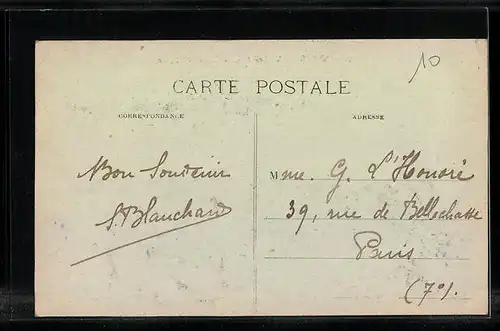 10
CARTE POSTALE
CORRESPONDANCE
ADRESSE
Bon Souvenir
S. Blanchard
Mme. G. L'Honoré
39, rue de Bellechasse
Paris
(7º).